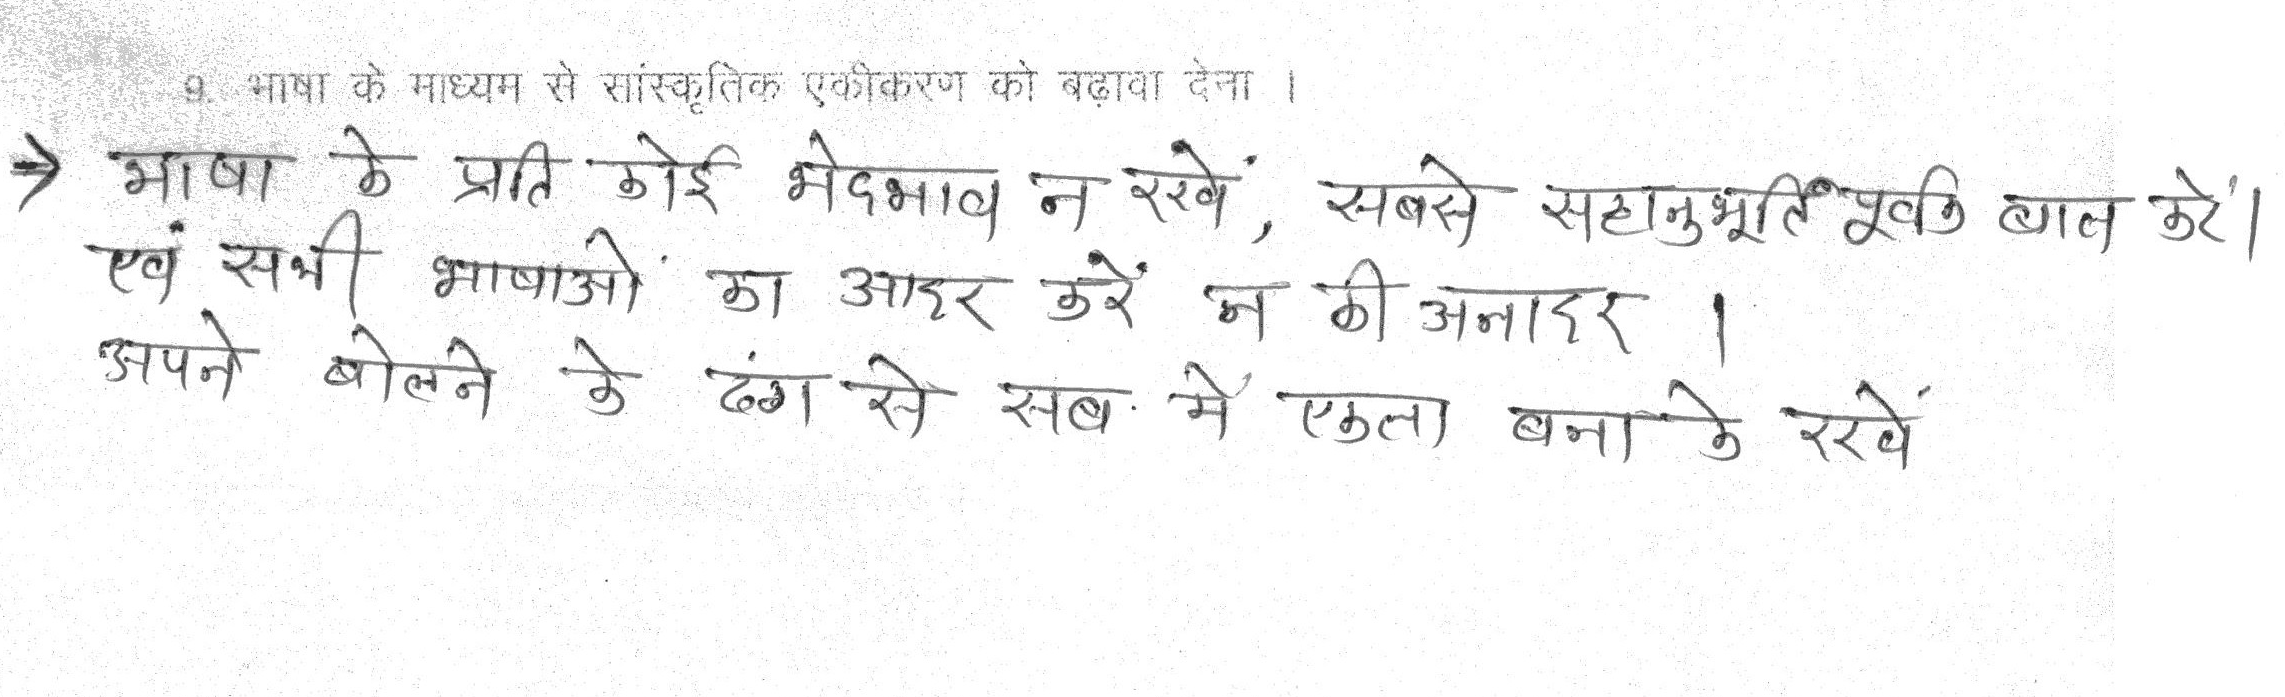 9. भाषा के माध्यम से सांस्कृतिक एकीकरण को बढ़ावा देना ।
→ भाषा के प्रति कोई भेदभाव न रखें, सबसे सहानुभूति पूर्वक बात करें।
एवं सभी भाषाओं का आदर करें न की अनादर ।
अपने बोलने के ढंग से सब में एकता बना के रखें